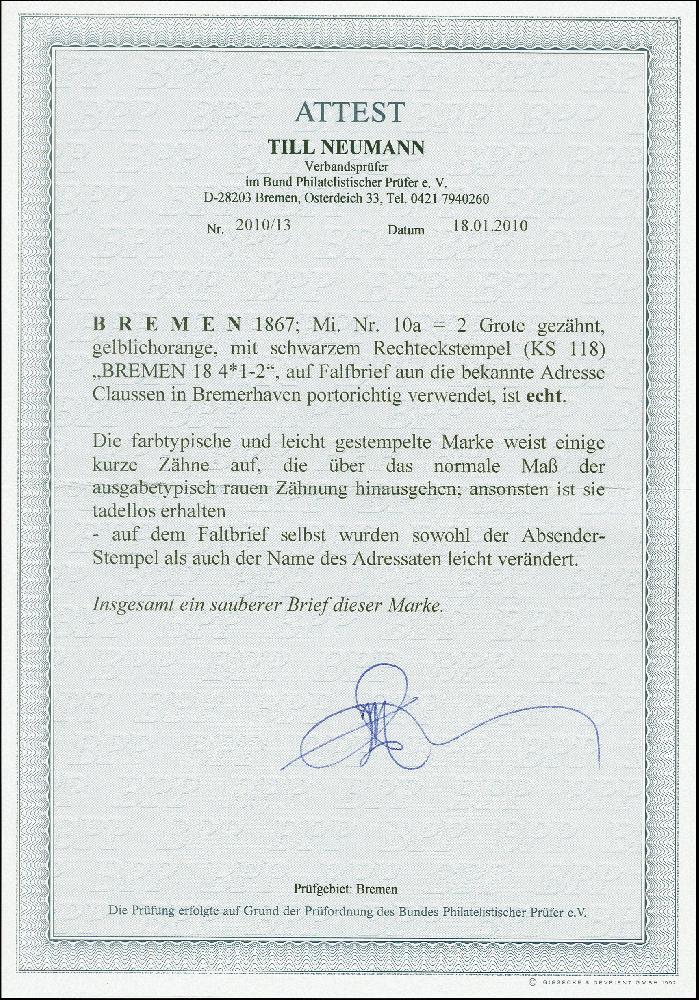 ATTEST
TILL NEUMANN
Verbandsprüfer
im Bund Philatelistischer Prüfer e. V.
D-28203 Bremen, Osterdeich 33, Tel. 0421 7940260
Nr. 2010/13 Datum 18.01.2010
B R E M E N 1867; Mi. Nr. 10a = 2 Grote gezähnt,
gelblichorange, mit schwarzem Rechteckstempel (KS 118)
„BREMEN 18 4*1-2“, auf Faltbrief aun die bekannte Adresse
Claussen in Bremerhaven portorichtig verwendet, ist echt.
Die farbtypische und leicht gestempelte Marke weist einige
kurze Zähne auf, die über das normale Maß der
ausgabetypisch rauen Zähnung hinausgehen; ansonsten ist sie
tadellos erhalten
- auf dem Faltbrief selbst wurden sowohl der Absender-
Stempel als auch der Name des Adressaten leicht verändert.
Insgesamt ein sauberer Brief dieser Marke.
Prüfgebiet: Bremen
Die Prüfung erfolgte auf Grund der Prüfordnung des Bundes Philatelistischer Prüfer e.V.
© GIESECKE & DEVRIENT GMBH